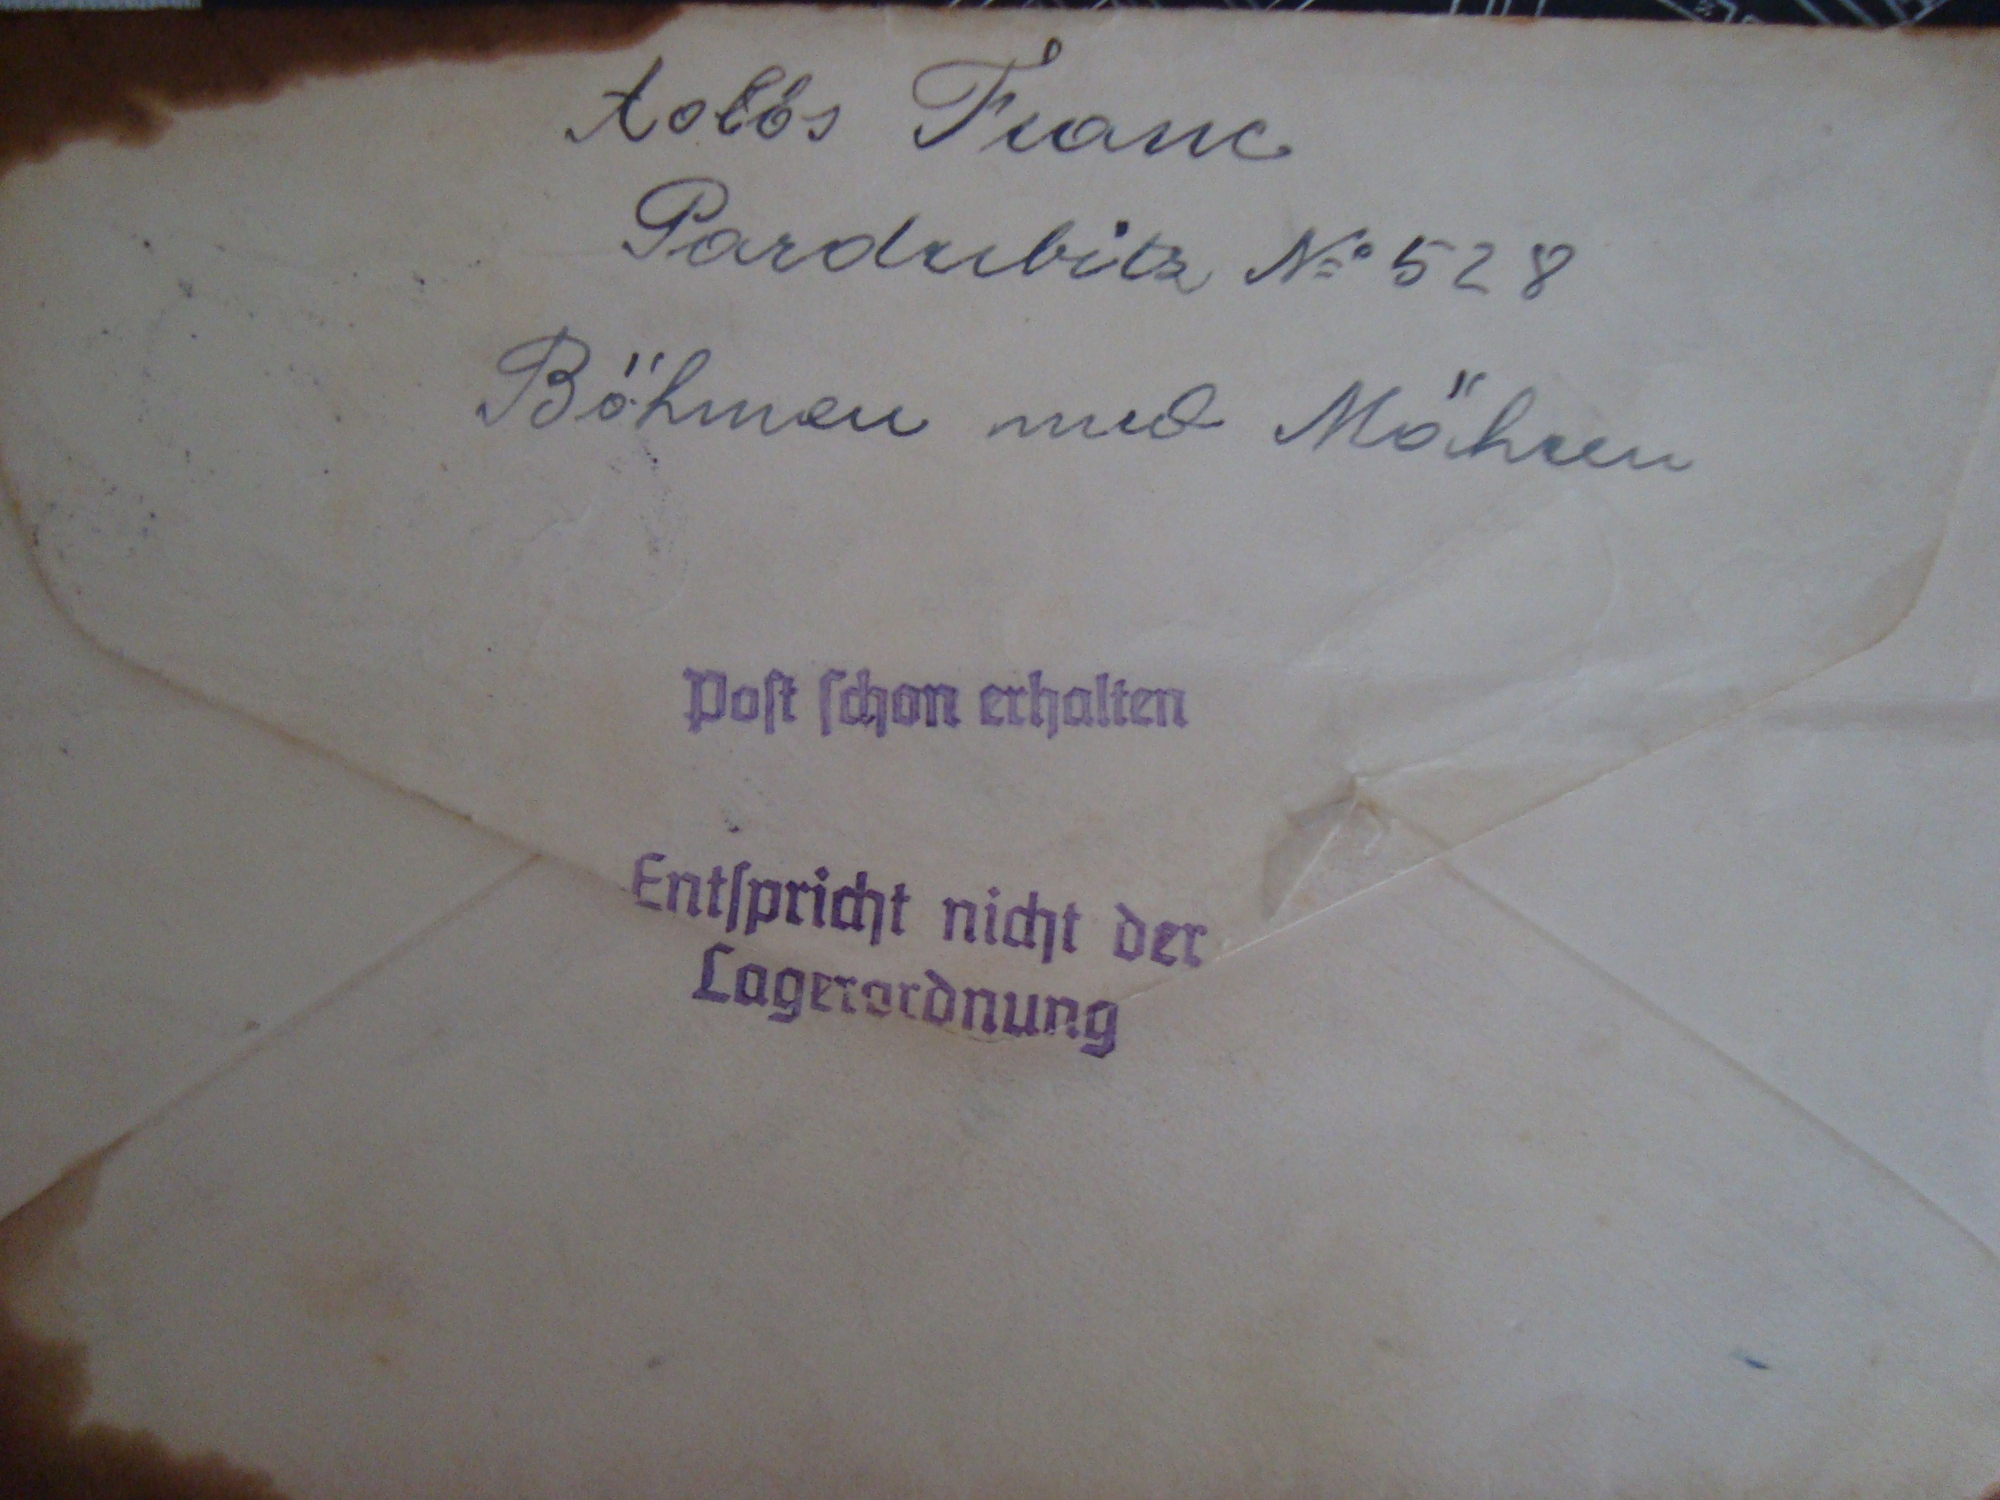 Franc
Pardubitz No 528
Böhmen und Mähren
Post schon erhalten
Entspricht nicht der
Lagerordnung